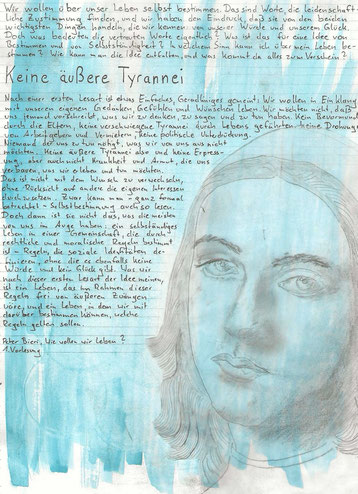 Wir wollen über unser Leben selbst bestimmen. Das sind Worte, die leidenschaft-
liche Zustimmung finden, und wir haben den Eindruck, daß sie von den beiden
wichtigsten Dingen handeln, die wir kennen: von unserer Würde und unserem Glück.
Doch was bedeuten die vertrauten Worte eigentlich? Was ist das für eine Idee von
Bestimmen und von Selbständigkeit? In welchem Sinn kann ich über mein Leben be-
stimmen? Wie kann man die Idee entfalten, und was kommt da alles zum Vorschein?
Keine äußere Tyrannei
Nach einer ersten Lesart ist etwas Einfaches, Geradliniges gemeint: Wir wollen in Einklang
mit unseren eigenen Gedanken, Gefühlen und Wünschen leben. Wir möchten nicht, daß
uns jemand vorschreibt, was wir zu denken, zu sagen und zu tun haben. Keine Bevormundung
durch die Eltern, keine verschwiegene Tyrannei durch Lebensgefährten, keine Drohungen
von Arbeitgebern und Vermietern, keine politische Unterdrückung.
Niemand, der uns zu tun nötigt, was wir von uns aus nicht
möchten. Keine äußere Tyrannei also und keine Erpres-
sung, aber auch nicht Krankheit und Armut, die uns
verbauen, was wir erleben und tun möchten.
Das ist nicht mit dem Wunsch zu verwechseln,
ohne Rücksicht auf andere die eigenen Interessen
durchzusetzen. Zwar kann man - ganz formal
betrachtet - Selbstbestimmung auch so lesen.
Doch dann ist sie nicht das, was die meisten
von uns im Auge haben: ein selbständiges
Leben in einer Gemeinschaft, die durch
rechtliche und moralische Regeln bestimmt
ist - Regeln, die soziale Identitäten de-
finieren, ohne die es ebenfalls keine
Würde und kein Glück gibt. Was wir
nach dieser ersten Lesart der Idee meinen,
ist ein Leben, das im Rahmen dieser
Regeln frei von äußeren Zwängen
wäre, und ein Leben, in dem wir mit
darüber bestimmen können, welche
Regeln gelten sollen.
Peter Bieri, Wie wollen wir leben?
1. Vorlesung